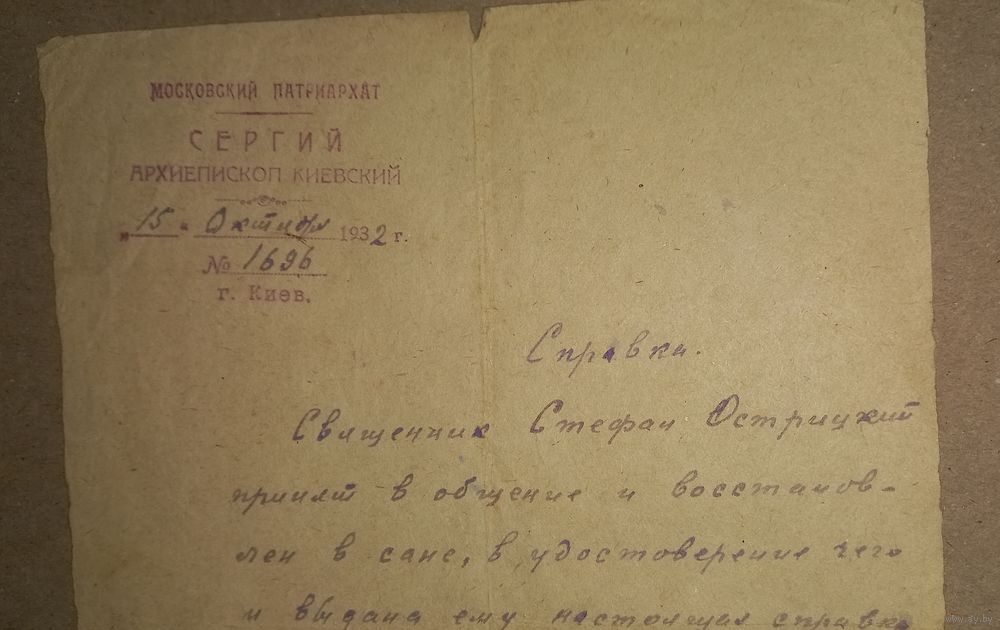 МОСКОВСКИЙ ПАТРИАРХАТ
СЕРГИЙ
АРХИЕПИСКОП КИЕВСКИЙ
„15" Октября 1932 г.
№ 1696
г. Киев.
Справка.
Священник Стефан Острицкий
принят в общение и восстанов-
лен в сане, в удостоверение чего
и выдана ему настоящая справка
www.ay.by